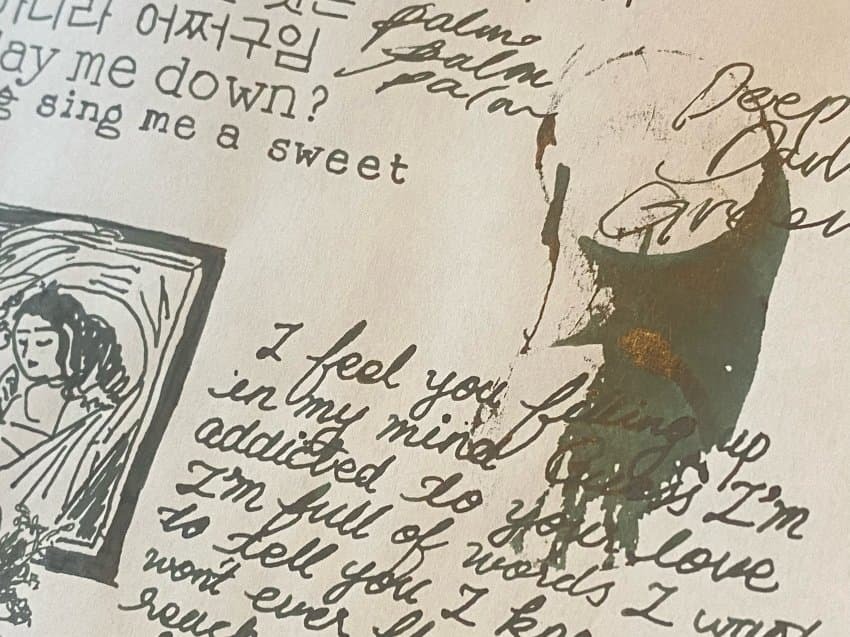 어쩌구입
lay me down?
sing me a sweet
palm
palm
palm
Deep
Dark
Green
I feel you filling up
in my mind Guess I'm
addicted to your love
I'm full of words I want
to tell you I
won't ever
reach